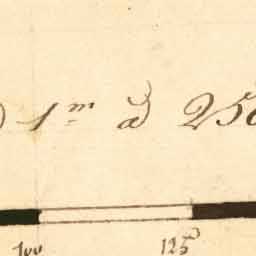 1m à 250
100 125